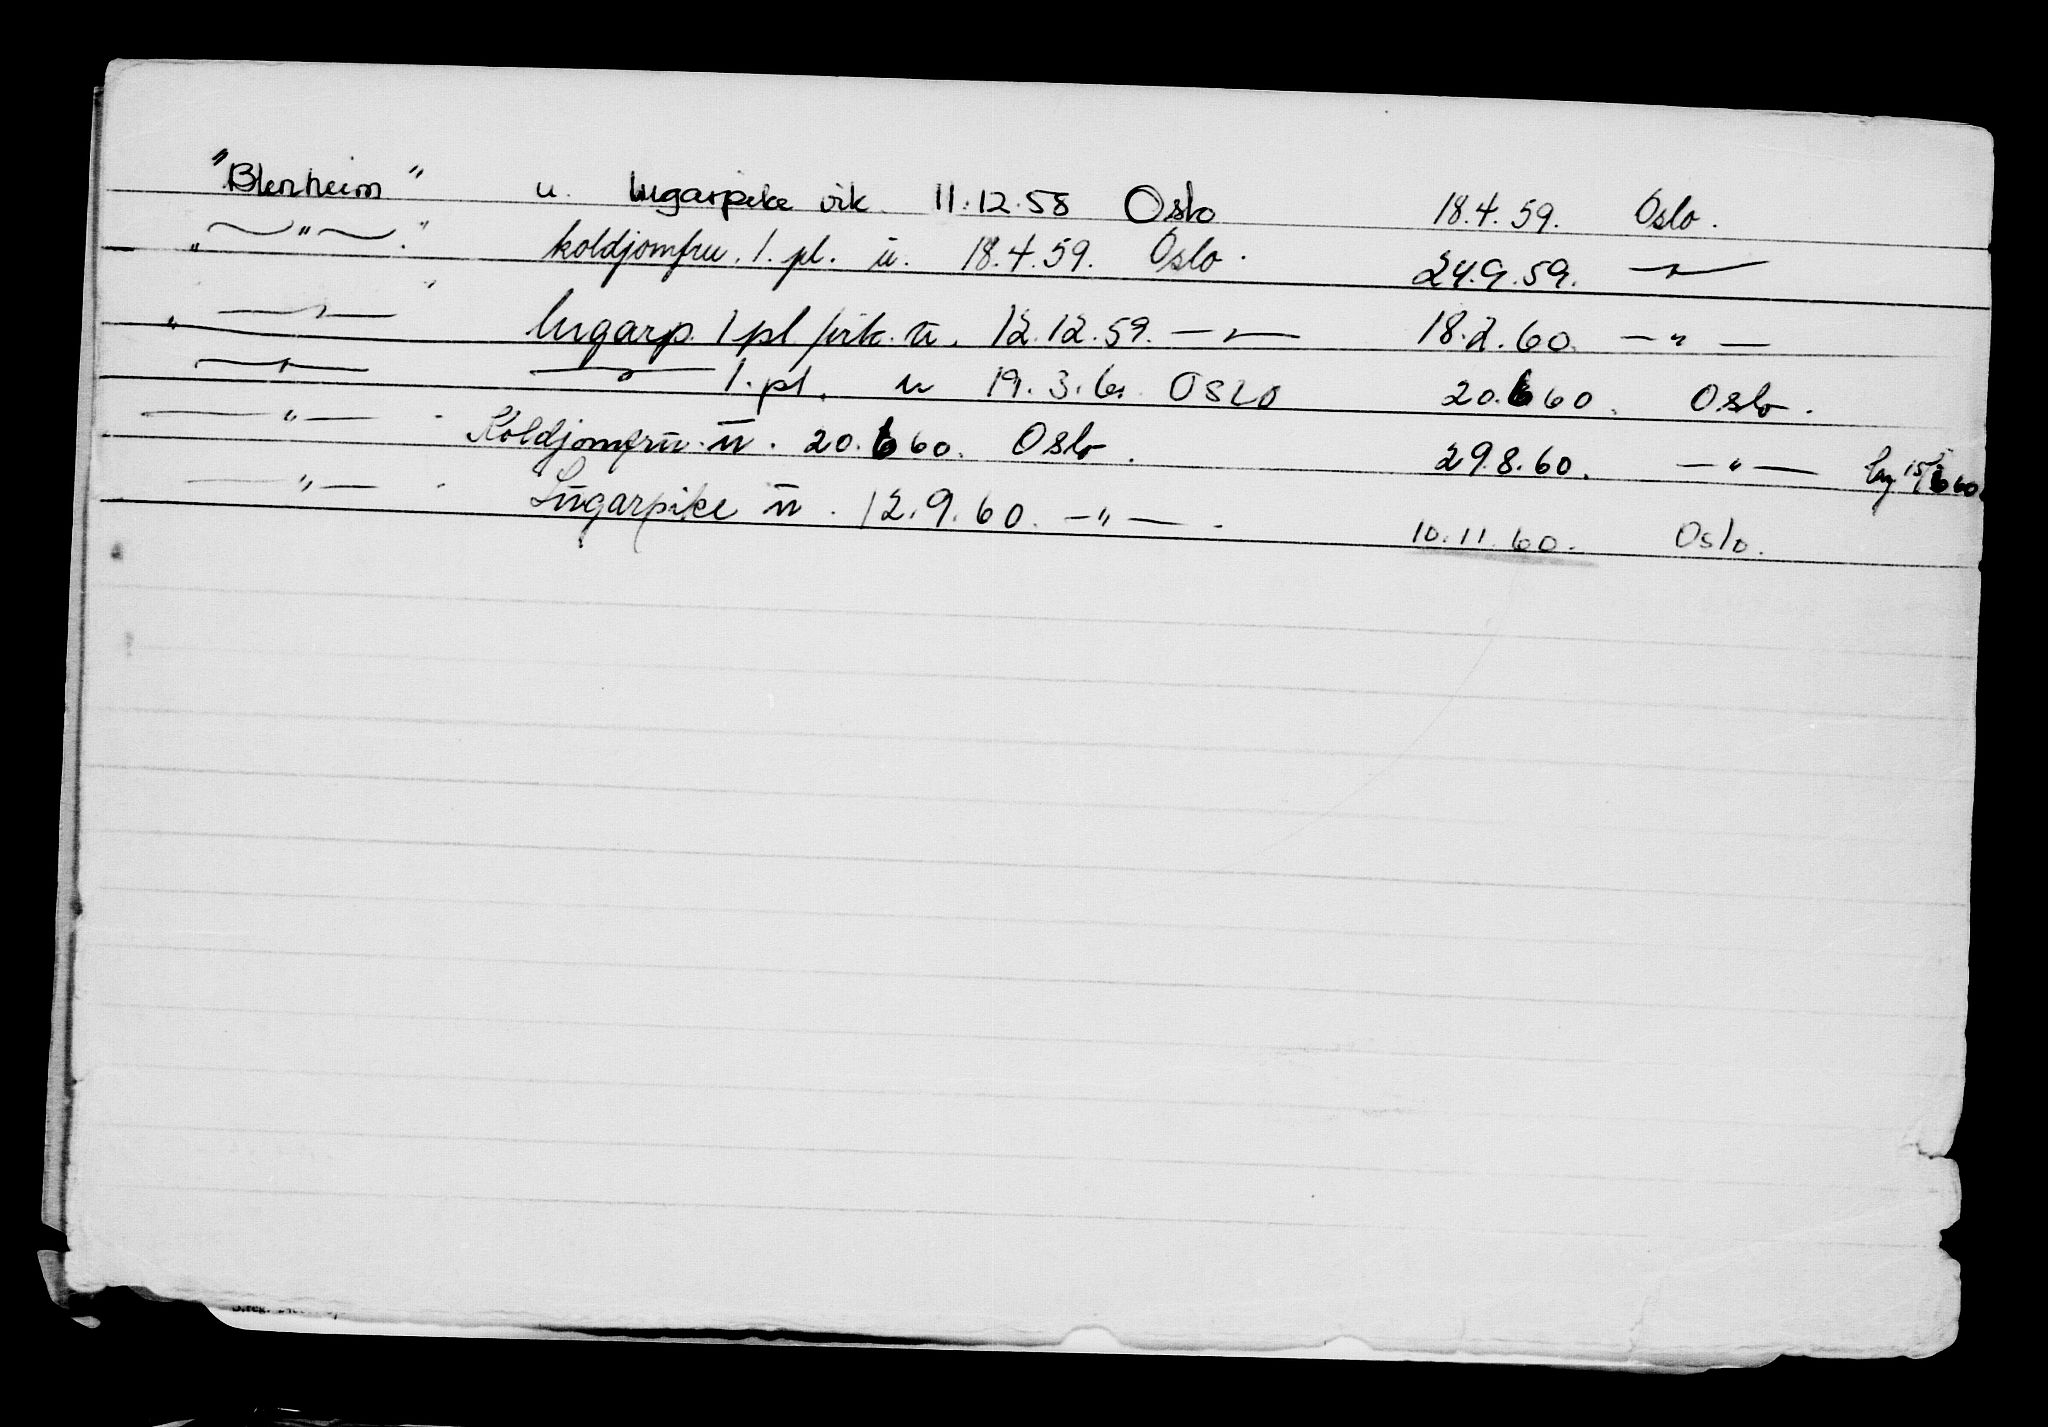 "Blenheim" u. lugarpike vik. 11.12.58 Oslo 18.4.59. Oslo.
" — " — ." koldjomfru. 1. pl. u. 18.4.59. Oslo. 24.9.59. — " —
" — " — " lugarp. 1 pl vik. u. 12.12.59. — " — 18.2.60. — " —
— " — — " — 1. pl. u 19.3.60. OSLO 20.6 60. Oslo.
— " — Koldjomfru u. 20.6 60. Oslo. 29.8.60. — " —
— " — Lugarpike u. 12.9.60. — " — . 10.11.60. Oslo.